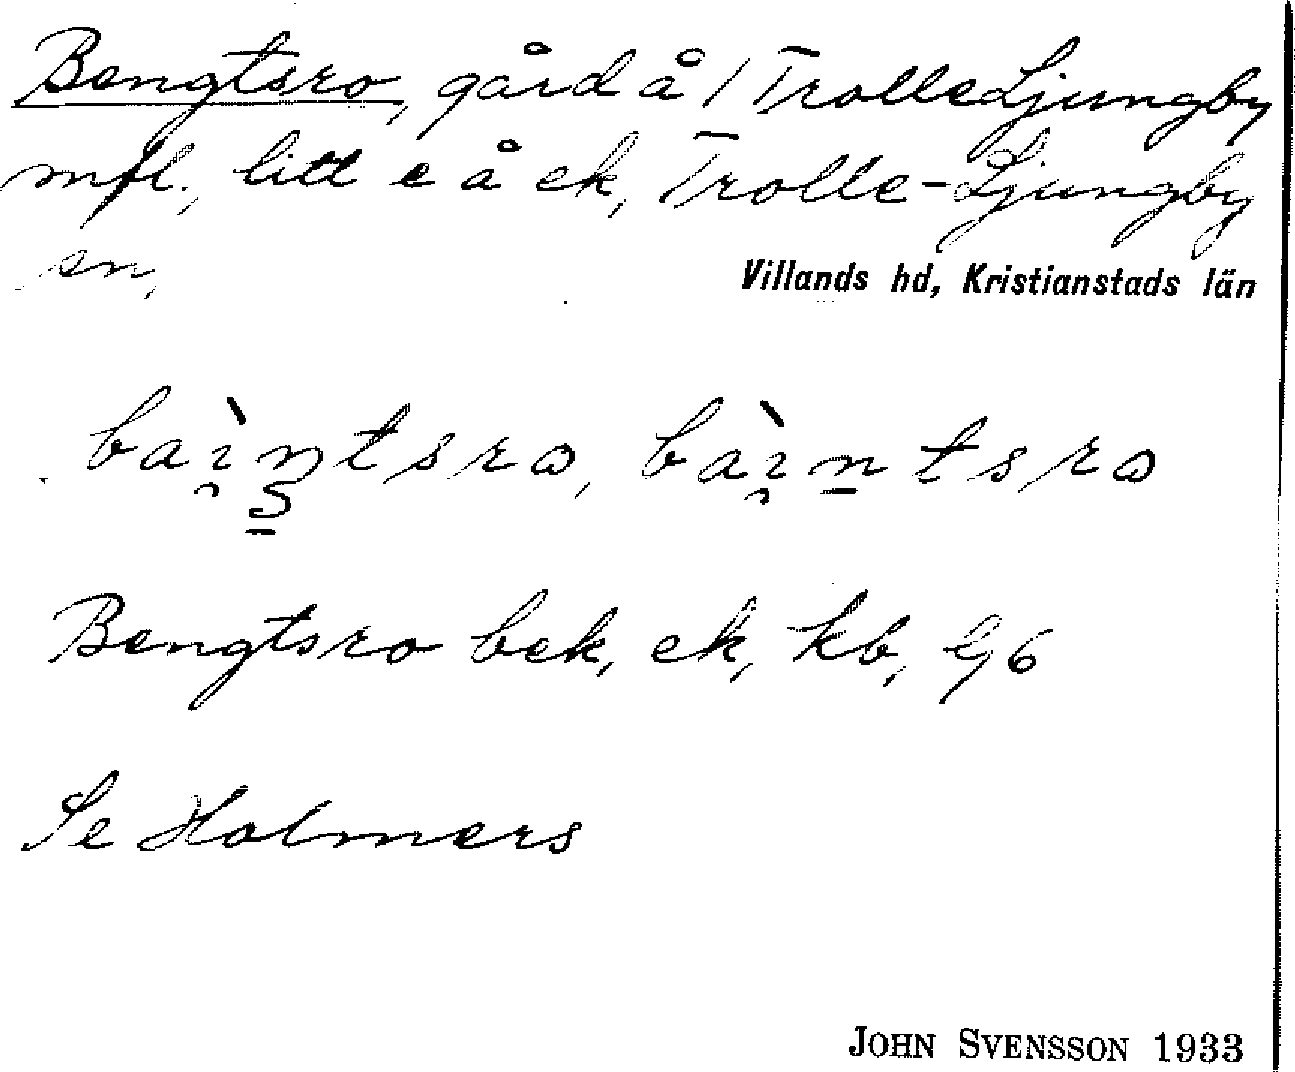 Bengtsro, gård å 1 TrolleLjungby
mfl., litt c å ek, Trolle-Ljungby
sn,
Villands hd, Kristianstads län
baı̯̀n̠tsrɷ, baı̯̀n̠tsrɷ
Bengtsro bek, ek, kb, Lj6
Se Holmers
JOHN SVENSSON 1933